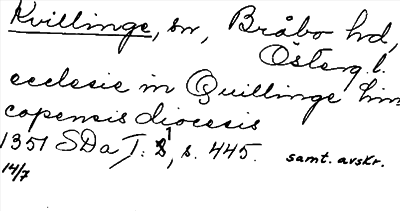 Kvillinge, sn, Bråbo hd,
Österg.l.
ecclesie in Quillinge lin
copensis diocesis
1351 SDa I: 1, s. 445. samt. avskr.
14/7